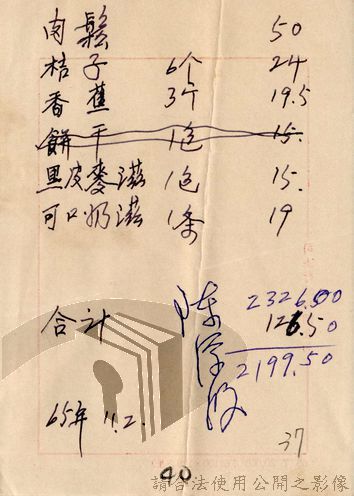 肉鬆 50
桔子 6个 24
香蕉 3个 19.5
餅干 1包 15.
黑皮麥滋 1包 15.
可口奶滋 1条 19
2326.00
126.50
合計 2199.50
65年 11.2.
37
40
請合法使用公開之影像